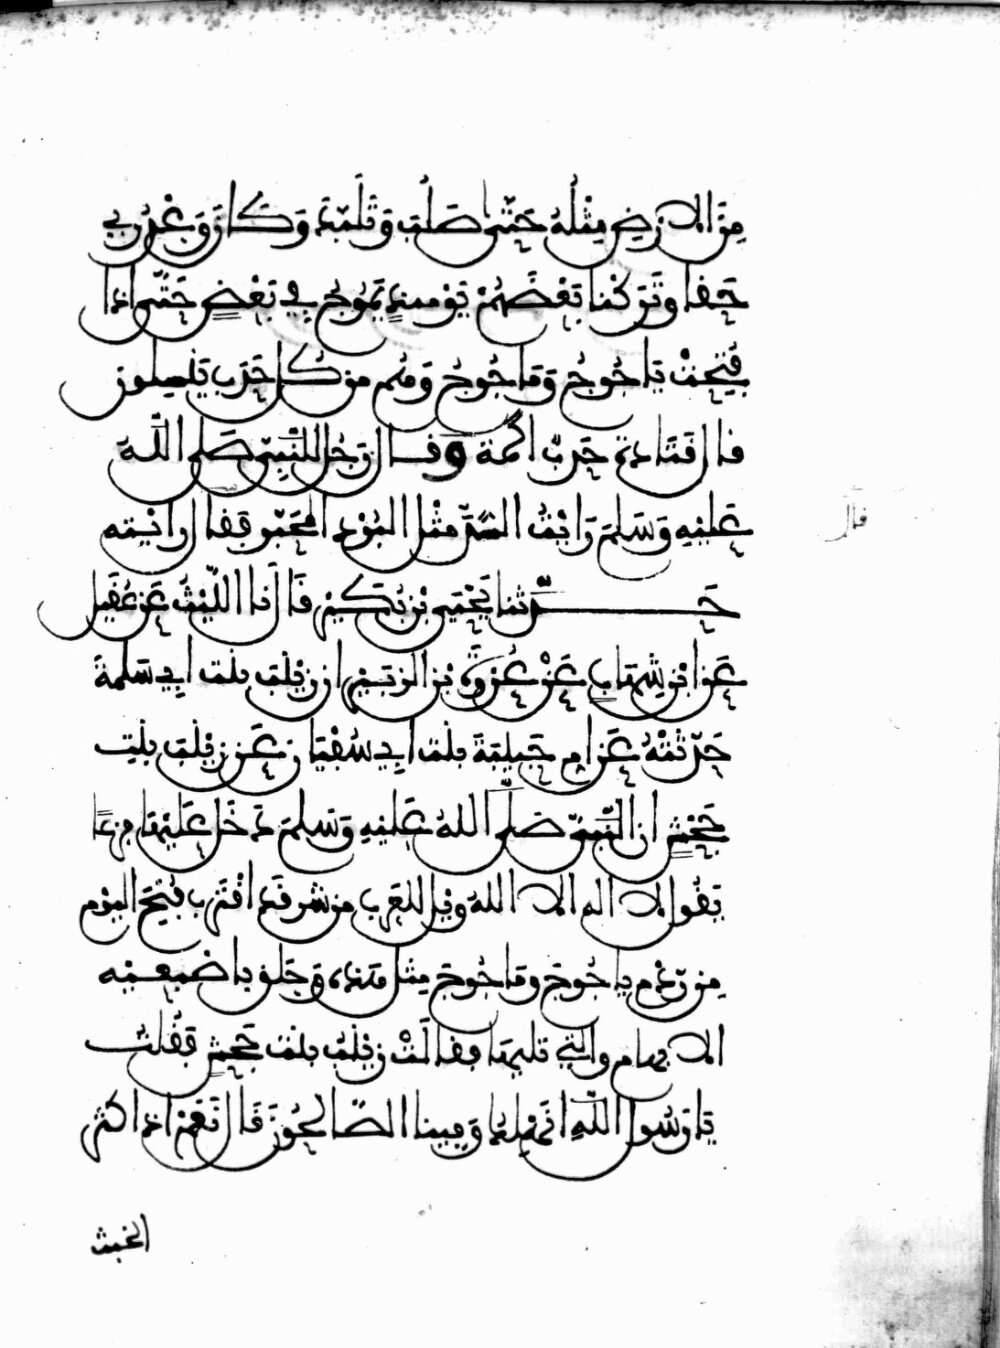 مِنَ الارْضِ مِثْلُهُ حَتَّى صَلُبَ وَتَلَبَّدَ وَكَانَ وَعْدُ رَبِّي
حَقا وَتَرَكْنا بَعْضَهُمْ يَوْمَئِذٍ يَمُوجُ فِي بَعْضٍ حَتَّى اذا
فُتِحَتْ يَاجُوجُ وَمَاجُوجُ وَهُم مِن كُلِّ حَدَبٍ يَنْسِلُونَ
قال قَتَادة حَدَبٌ اكَمَة وقـال رَجُل لِلنَّبِيِّ صَلى اللَّه
عَلَيْهِ وَسَلمَ رَايْتُ السَّدَّ مثْل البُرْدِ المُحَبَّرِ فقال رَايْته
حَـــدَّثنا يَحْيَى بْن بُكَيْرٍ قَال نا اللَّيْثُ عَن عُقَيل
عَن ابْن شِهَابٍ عَنْ عُرْوَةَ بْن الزبَيْرِ ان زيْنَبَ بنت ابِي سَلَمَةَ
حَدَّثتْهُ عَن ام حَبِيبَةَ بنت ابِي سُفْيَان عَن زيْنَبَ بنْتِ
جَحْشٍ ان النَّبِيَّ صَلَّى اللهُ عَلَيْهِ وَسَلمَ دَخَل عَلَيْهَا فَزِعًا
يَقُول لا اله الا اللهُ وَيْل لِلعَرَب مِن شر قَد اقْتَرَب فُتِحَ اليَوْم
مِن رَدْم ياجُوجَ وَمَاجُوجَ مِثْل هَذِهِ وَحَلق باصْبعـيْه
الابهام والتِي تلِيهَا فقالَتْ زيْنَبُ بنت جَحْشٍ فَقُلتُ
يَا رَسُول اللَّهِ انَهْلِكُ وَفِينا الصَّالِحُونَ قَال نَعَمْ اذا كَثُر
الخبث
قال